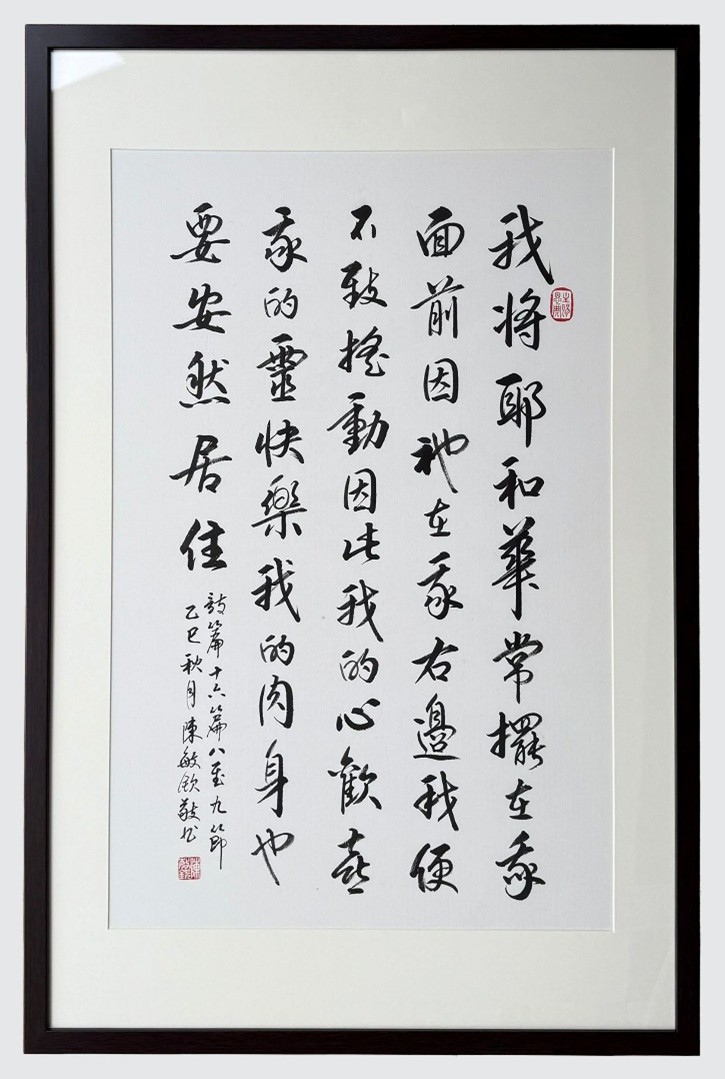 我将耶和華常擺在我
面前因祂在我右邊我便
不致搖動因此我的心歡喜
我的靈快樂我的肉身也
要安然居住
詩篇十六篇八至九節
乙巳秋月陳敏欽敬书